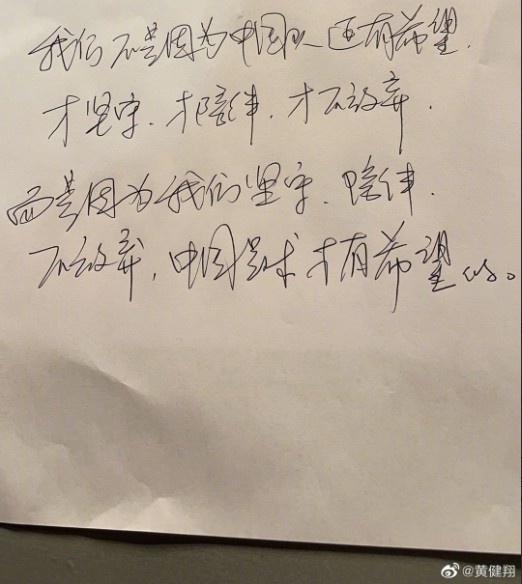 我们不是因为中国队还有希望.
才坚守.才陪伴.才不放弃.
而是因为我们坚守.陪伴.
不放弃,中国足球才有希望的。
@黄健翔